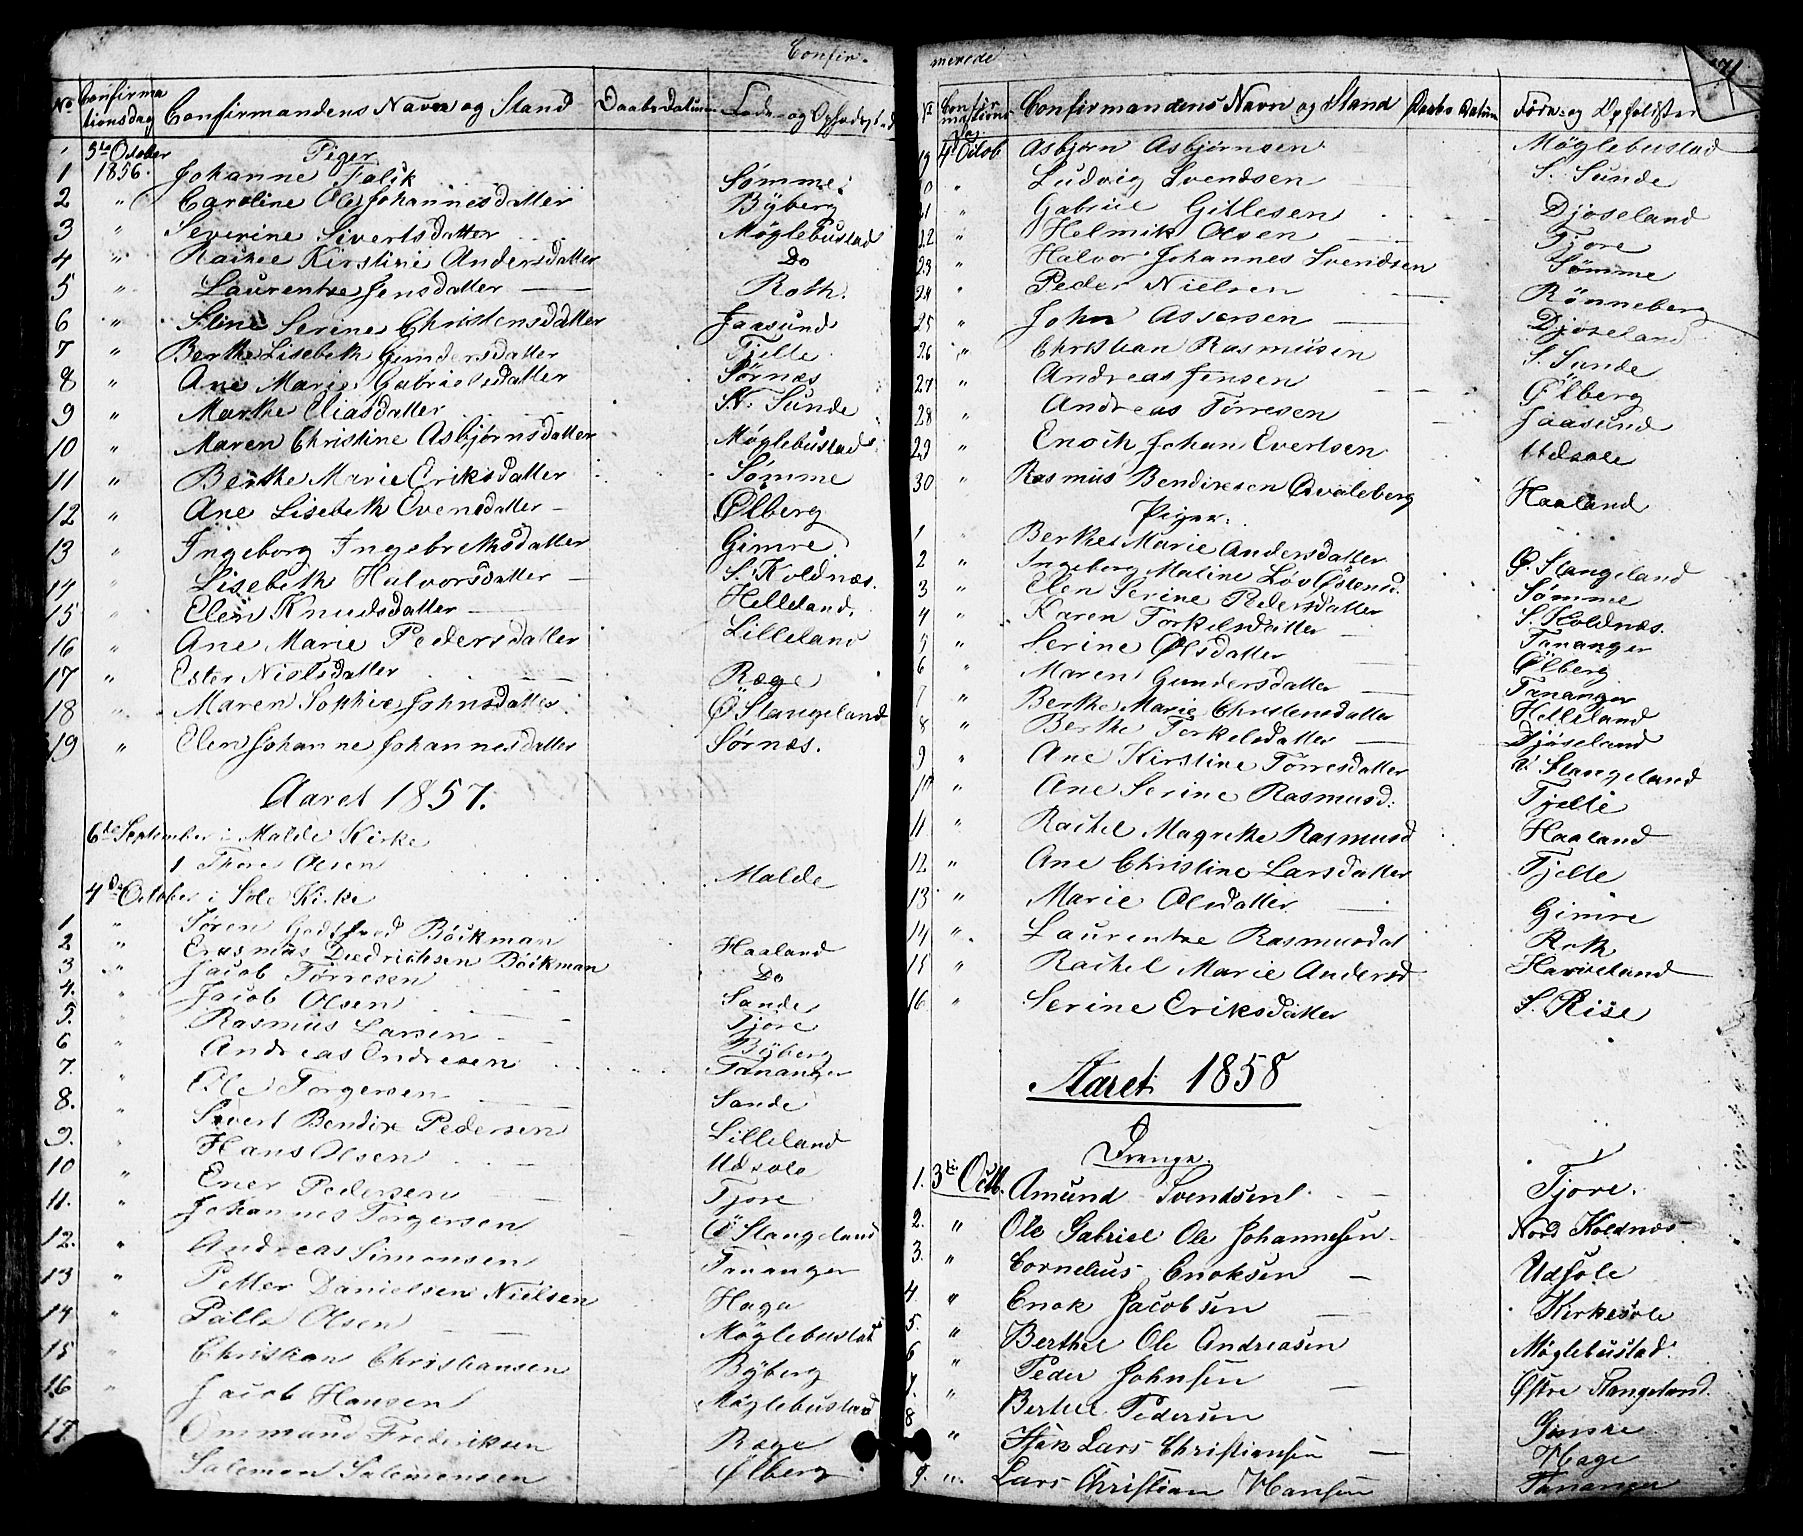 Confir-
No Confirmationsdag Confirmandens Navn og Stand Daabs Datum Føde- og Opholdssted
5te October Piger
1 1856. Johanne Falik Sømme
2 " Caroline Ole Johannesdatter Byberg
3 " Severine Sivertsdatter Møglebustad
4 " Rachel Kirstine Andersdatter Do
5 " Laurentze Jensdatter Roth.
6 " Stine Serine Christensdatter Jaasund
7 " Berthe Lisebeth Gundersdatter Tjelte
8 " Ane Marie Gabrielsdatter Sørnæs
9 " Marthe Eliasdatter N. Sunde
10 " Maren Christine Asbjørnsdatter Møglebustad
11 " Berthe Marie Eriksdatter Sømme
12 " Ane Lisebeth Evensdatter Ølberg
13 " Ingeborg Ingebrethsdatter Gimre
14 " Lisebeth Halvorsdatter S. Koldnæs.
15 " Elen Knudsdatter Helleland.
16 " Ane Marie Pedersdatter Lilleland
17 " Ester Nielsdatter Ræge
18 " Maren Sophie Johnsdatter Ø Stangeland
19 " Elen Johanne Johannesdatter Sørnæs.
Aaret 1857.
6te September i Malde Kirke
1 Thore Olsen Malde
4de October i Sole Kirke
1 " Søren Godtfred Böickman Haaland
2 " Erasmus Diedrichsen Böickman Do
3 " Jacob Tørresen Sande
4. " Jacob Olsen Tjore
5. " Rasmus Larsen Byberg
6 " Andreas Endresen Tananger
7. " Ole Torgersen Sande
8. " Sivert Bendix Pedersen Lilleland
9. " Hans Olsen Udsole
10 " Ener Pedersen Tjore
11. " Johannes Torgersen Ø Stangeland
12. " Andreas Simonsen Tananger
13 " Petter Danielsen Nielsen Haga
14 " Palle Olsen Møglebustad
15 " Christian Christiansen Byberg
16 " Jacob Hansen Møglebustad
17 Ommund Frederiksen Ræge
Salomon Salomonsen Ølberg
merede
71
No Confirmations Dag Confirmandens Navn og Stand Daabs Datum Føde- og Opholdsted
19 4de Octob Asbjørn Asbjørnsen Møglebustad
20 " Ludvig Svendsen S. Sunde
21 " Gabriel Gitlesen Djøseland
22 " Helmik Olsen Tjore
23 " Halvor Johannes Svendsen Sømme
24 " Peder Nielsen Rønneberg
25 " John Assersen Djøseland
26 " Christian Rasmusen S. Sunde
27 " Andreas Jensen Ølberg
28 " Andreas Tørresen Jaasund
29 " Enoch Johan Evertsen Udsole
30 " Rasmus Bendixsen Qvaleberg Haaland
Piger.
1 Berthe Marie Andersdatter Ø. Stangeland
2 " Ingeborg Maline Løv Østensd. Sømme
3 " Elen Serine Pedersdatter S. Koldnæs.
4 " Karen Torkelsdatter Tananger
5 " Serine Olsdatter Ølberg
6 " Maren Gundersdatter Tananger
7 " Berthe Marie Christensdatter Helleland
8 " Berthe Torkelsdatter Djøseland
9 " Ane Kirstine Tørresdatter Ø Stangeland
10 " Ane Serine Rasmusd: Tjelte
11 " Rachel Magrethe Rasmusd Haaland
12 " Ane Christine Larsdatter Tjelte
13 " Marie Olsdatter Gimre
14 " Laurentze Rasmusdat Roth
15 " Rachel Marie Andersd Haviseland
16 " Serine Eriksdatter S. Risе
Aaret 1858
Drenge.
1. 3die Octb. Amund Svendsen Tjore.
2. " Ole Gabriel Ole Johannesen Nord Koldnæs
3. " Cornelius Enoksen Udsole
4 " Enok Jacobsen Kirkesole
5. " Berthel Ole Andreasen Møglebustad
6 " Peder Johnsen Østre Stangeland.
7. " Berthel Pedersen Gimre
8 " Isak Lars Christiansen Hage
9. " Lars Christian Hansen Tananger